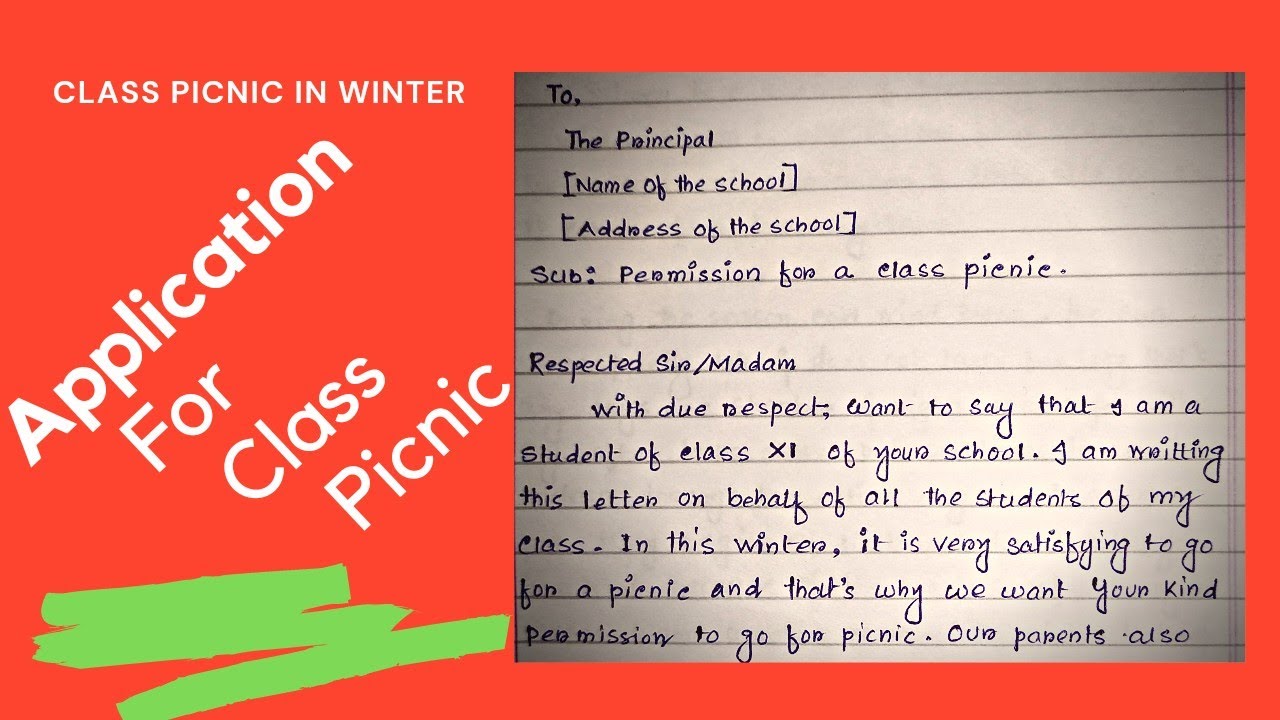 CLASS PICNIC IN WINTER
Application
For
Class
Picnic
To,
The Principal
[Name of the school]
[Address of the school]
Sub: Permission for a class picnic.
Respected Sir/Madam
With due respect, want to say that I am a
student of class XI of your school. I am writting
this letter on behalf of all the students of my
class. In this winter, it is very satisfying to go
for a picnic and that's why we want your kind
permission to go for picnic. Our parents also